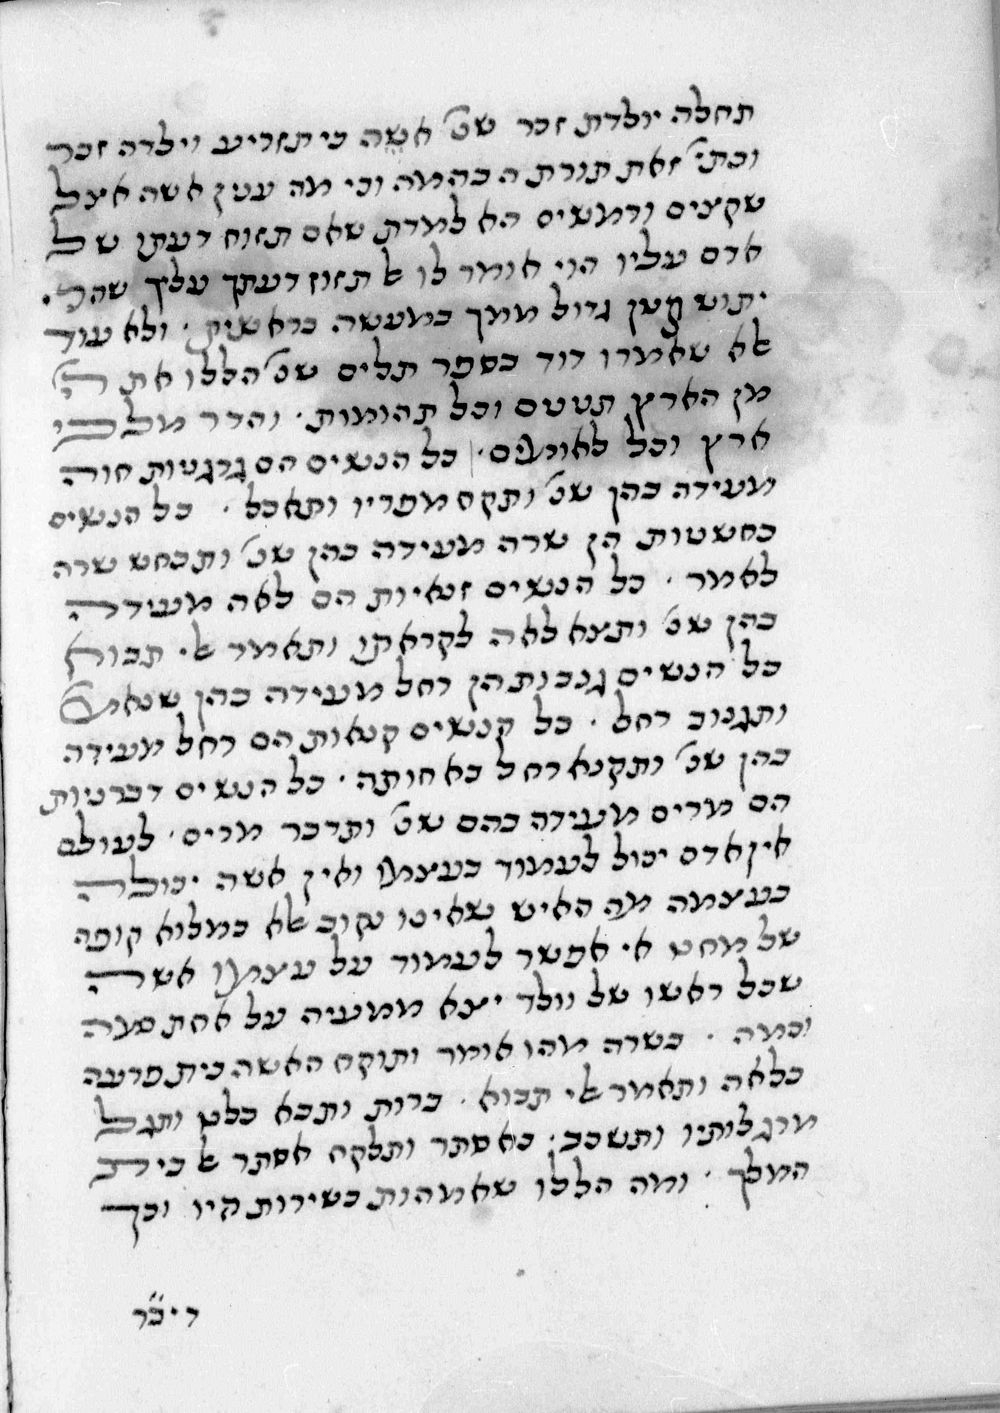 תחלה יולדת זכר שנ' אשה כי תזריע וילדה זכר
וכתי' זאת תורת הבהמה וכי מה ענין אשה אצל
שקצים ורמשים הא למדת שאם תזוח דעתו של
אדם עליו הוי אומר לו אל תזוז דעתך עליך שהרי
יתוש קטן גדול ממך במעשה בראשית · ולא עוד
אלא שאמרו דוד בספר תלים שנ' הללו את ה'
מן הארץ תנינים וכל תהומות · והדר מלכי
ארץ וכל לאומים · כל הנשים הם גרגניות חוה
מעידה בהן שנ' ותקח מפריו ותאכל · כל הנשים
כחשניות הן שרה מעידה בהן שנ' ותכחש שרה
לאמר · כל הנשים זנאיות הם לאה מעידה
בהן שנ' ותצא לאה לקראתו ותאמר אלי תבוא
כל הנשים גנבות הן רחל מעידה בהן שנאמ'
ותגנוב רחל · כל הנשים קנאות הם רחל מעידה
בהן שנ' ותקנא רחל באחותה · כל הנשים דברניות
הם מרים מעידה בהם שנ' ותדבר מרים · לעולם
אין אדם יכול לעמוד בעצמו ואין אשה יכולה
בעצמה מה האיש שאינו נקוב אלא כמלוא קופה
של מחט אי אפשר לעמוד על עצמו אשה
שכל ראשו של וולד יצא ממעיה על אחת כמה
וכמה · בשרה מהו אומר ותוקח האשה בית פרעה
בלאה ותאמר אלי תבוא · ברות ותבא בלט ותגל
מרגלותיו ותשכב · באסתר ותלקח אסתר אל בית
המלך · ומה הללו שאמהות כשירות היו וכך
די כ"ר